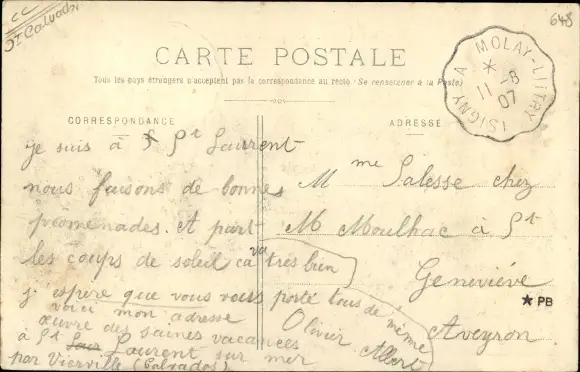 CC
St Calvados
648
CARTE POSTALE
Tous les pays étrangers n'acceptent pas la correspondance au recto (Se renseigner à la Poste)
ISIGNY A MOLAY-LITTRY
11 -8
07
CORRESPONDANCE
ADRESSE
Je suis à St Laurent
nous faisons de bonnes
promenades. A part
les coups de soleil ca va très bien
j'espère que vous vous porté tous de même
Olivier Albert
voici mon adresse
œuvre des saines vacances
à St Laurent sur mer
par Vierville (Calvados)
Mme Salesse chez
M Moulhac à St
Geneviève
Aveyron
★ PB